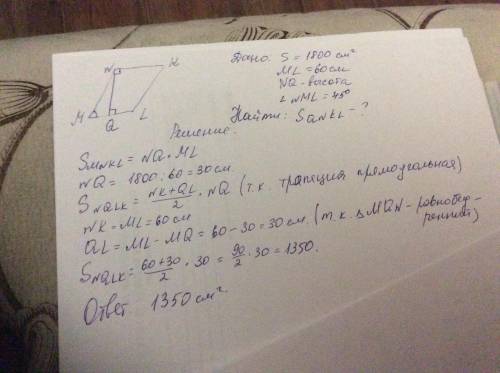 N K
M Q L
Дано: S = 1800 см²
ML = 60 см
NQ - высота
∠ NML = 45°
Найти: SQNKL - ?
Решение:
SMNKL = NQ · ML
NQ = 1800 : 60 = 30 см
SNQLK = NK + QL / 2 · NQ (т.к. трапеция прямоугольная)
NK = ML = 60 см
QL = ML - MQ = 60 - 30 = 30 см (т.к. ΔMQN - равнобед-
ренный)
SNQLK = 60 + 30 / 2 · 30 = 90 / 2 · 30 = 1350.
Ответ 1350 см².